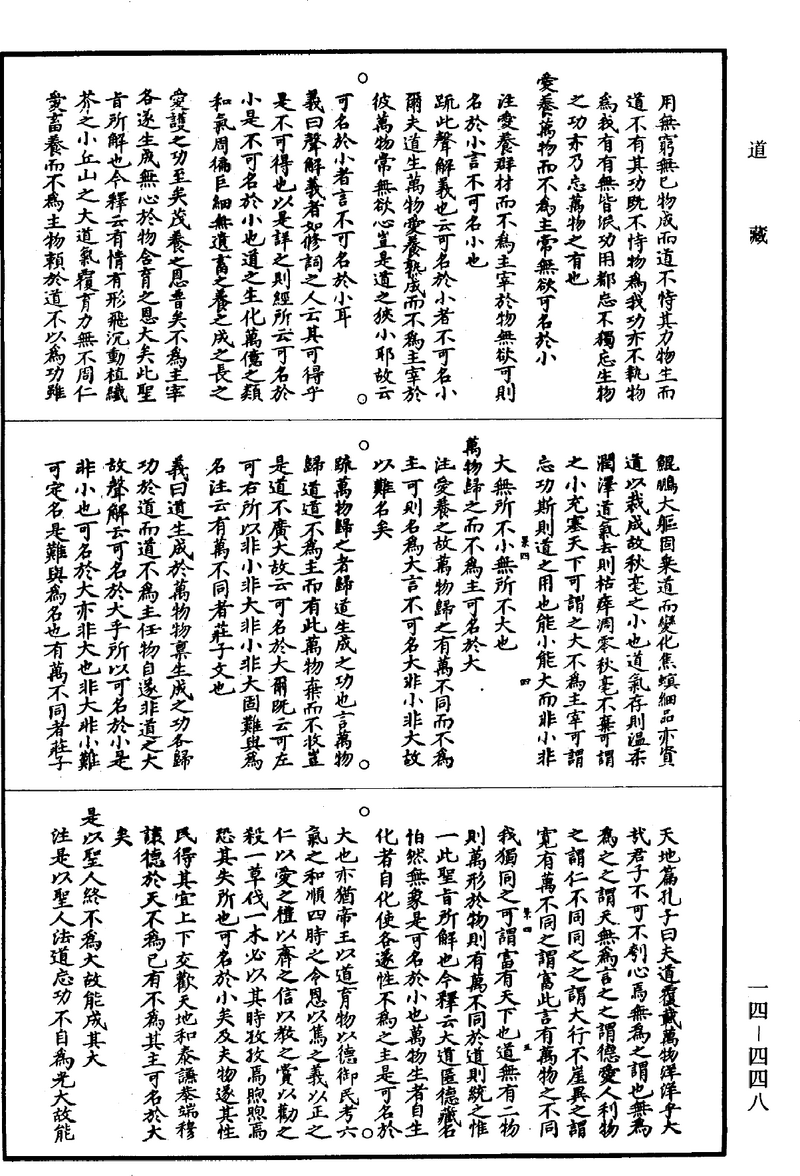 道藏
用無窮無已物成而道不恃其力物生而
道不有其功既不恃物為我功亦不執物
為我有有無皆泯功用都忘不獨忘生物
之功亦乃忘萬物之有也
愛養萬物而不為主常無欲可名於小
注愛養群材而不為主宰於物無欲可則
名於小言不可名小也
疏此聲解義也云可名於小者不可名小
爾夫道生萬物愛養熟成而不為主宰於
彼萬物常無欲心豈是道之狹小耶故云
可名於小者言不可名於小耳
義曰聲解義者如修詞之人云其可得乎
是不可得也以是詳之則經所云可名於
小是不可名於小也道之生化萬億之類
和氣周徧巨細無遺畜之養之成之長之
愛護之功至矣茂養之恩普矣不為主宰
各遂生成無心於物含育之恩大矣此聖
旨所解也今釋云有情有形飛沉動植纖
芥之小丘山之大道氣覆育力無不周仁
愛畜養而不為主物賴於道不以為功雖
鯤鵬大軀固稟道而變化焦螟細品亦資
道以裁成故秋毫之小也道氣存則溫柔
潤澤道氣去則枯瘁凋零秋毫不棄可謂
之小充塞天下可謂之大不為主宰可謂
忘功斯則道之用也能小能大而非小非
大無所不小無所不大也
萬物歸之而不為主可名於大
注愛養之故萬物歸之有萬不同而不為
主可則名為大言不可名大非小非大故
以難名矣
疏萬物歸之者歸道生成之功也言萬物
歸道道不為主而有此萬物棄而不收豈
是道不廣大故云可名於大爾既云可左
可右所以非小非大非小非大固難與為
名注云有萬不同者莊子文也
義曰道生成於萬物物稟生成之功各歸
功於道而道不為主任物自遂非道之大
故聲解云可名於大乎所以可名於小是
非小也可名於大亦非大也非大非小難
可定名是難與為名也有萬不同者莊子
天地篇孔子曰夫道覆載萬物洋洋乎大
哉君子不可不刳心焉無為為之謂也無為
為之之謂天無為言之之謂德愛人利物
之謂仁不同同之之謂大行不崖異之謂
寬有萬不同之謂富此言有萬物之不同
我獨同之可謂富有天下也道無有二物
則萬形於物則有萬不同於道則統之惟
一此聖旨所解也今釋云大道匿德藏名
怕然無象是可名於小也萬物生者自生
化者自化使各遂性不為之主是可名於
大也亦猶帝王以道育物以德御民考六
氣之和順四時之令恩以煦之義以正之
仁以愛之禮以齊之信以教之賞以勸之
殺一草伐一木必以其時孜孜焉煦煦焉
恐其失所也可名於小矣及夫物遂其性
民得其宜上下交歡天地和泰謙恭端穆
讓德於天不為己有不為其主可名於大
矣
是以聖人終不為大故能成其大
注是以聖人法道忘功不自為光大故能
一四—四四八